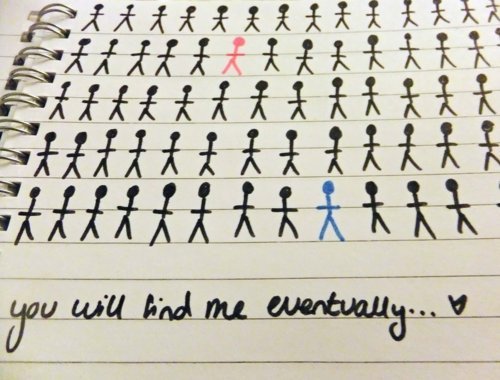 you will find me eventually... ♥